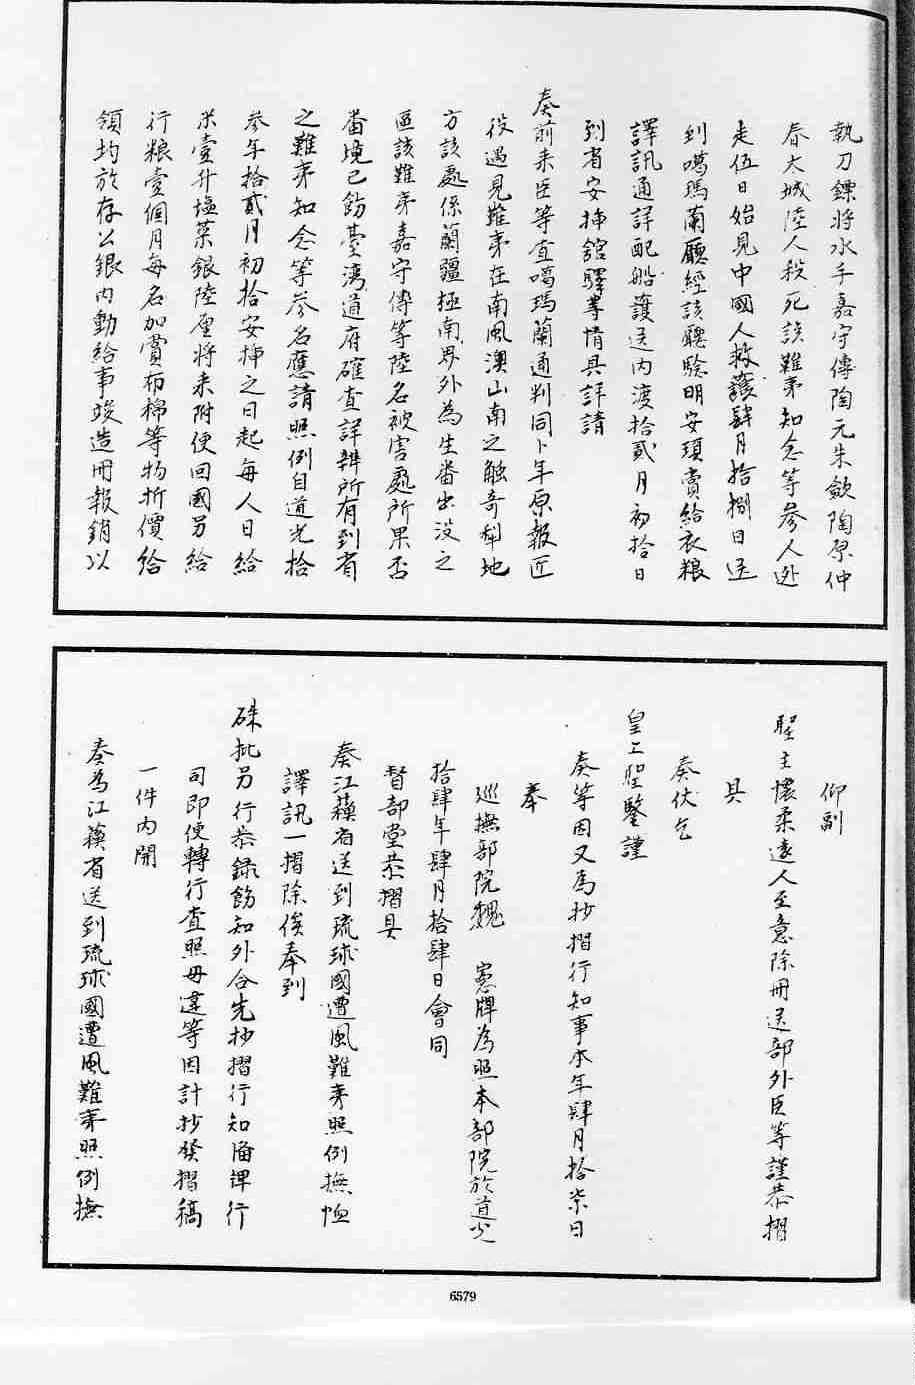 執刀鏢將水手嘉守傳陶元朱歛陶原仲
春大城陸人殺死該難夷知念等參人逃
走伍日始見中國人救護肆月拾捌日送
到噶瑪蘭廳經該廳驗明安頓賞給衣粮
譯訊通詳配船護送內渡拾貳月初拾日
到省安揷舘驛等情具詳請
奏前來臣等查噶瑪蘭通判同卜年原報匠
役遇見難夷在南風澳山南之觸奇犁地
方該處係蘭疆極南界外為生番出沒之
區該難夷嘉守傳等陸名被害處所果否
番境已飭臺灣道府確查詳辦所有到省
之難夷知念等參名應請照例自道光拾
參年拾貳月初拾安揷之日起每人日給
米壹升塩菜銀陸厘將來附便回國另給
行粮壹個月每名加賞布棉等物折價給
領均於存公銀內動給事竣造冊報銷以
仰副
聖主懷柔遠人至意除冊送部外臣等謹恭摺
具
奏伏乞
皇上聖鑒謹
奏等因又為抄摺行知事本年肆月拾柒日
奉
巡撫部院魏 憲牌為照本部院於道光
拾肆年肆月拾肆日會同
督部堂恭摺具
奏江蘓省送到琉球國遭風難夷照例撫恤
譯訊一摺除俟奉到
硃批另行恭錄飭知外合先抄摺行知備牌行
司即便轉行查照毋違等因計抄發摺稿
一件內開
奏為江蘓省送到琉球國遭風難夷照例撫
6579